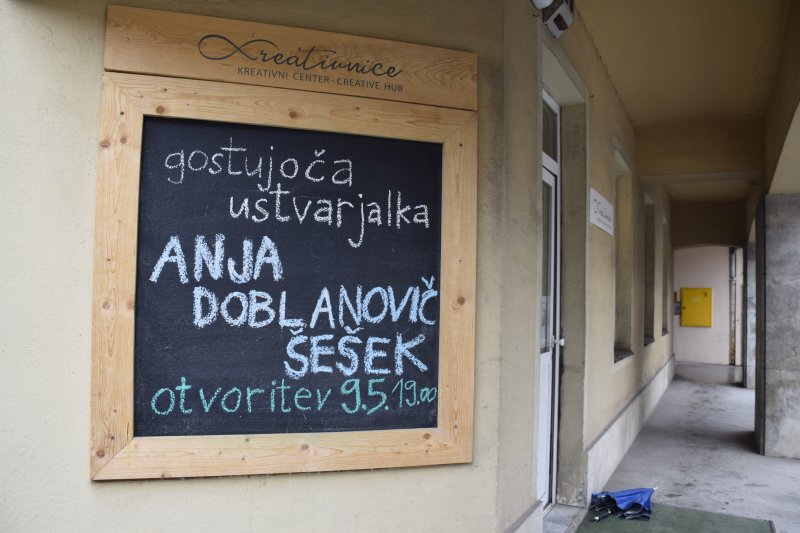 Kreativnice
KREATIVNI CENTER · CREATIVE HUB
gostujoča
ustvarjalka
ANJA
DOBLANOVIČ
ŠEŠEK
otvoritev 9.5. 19.00